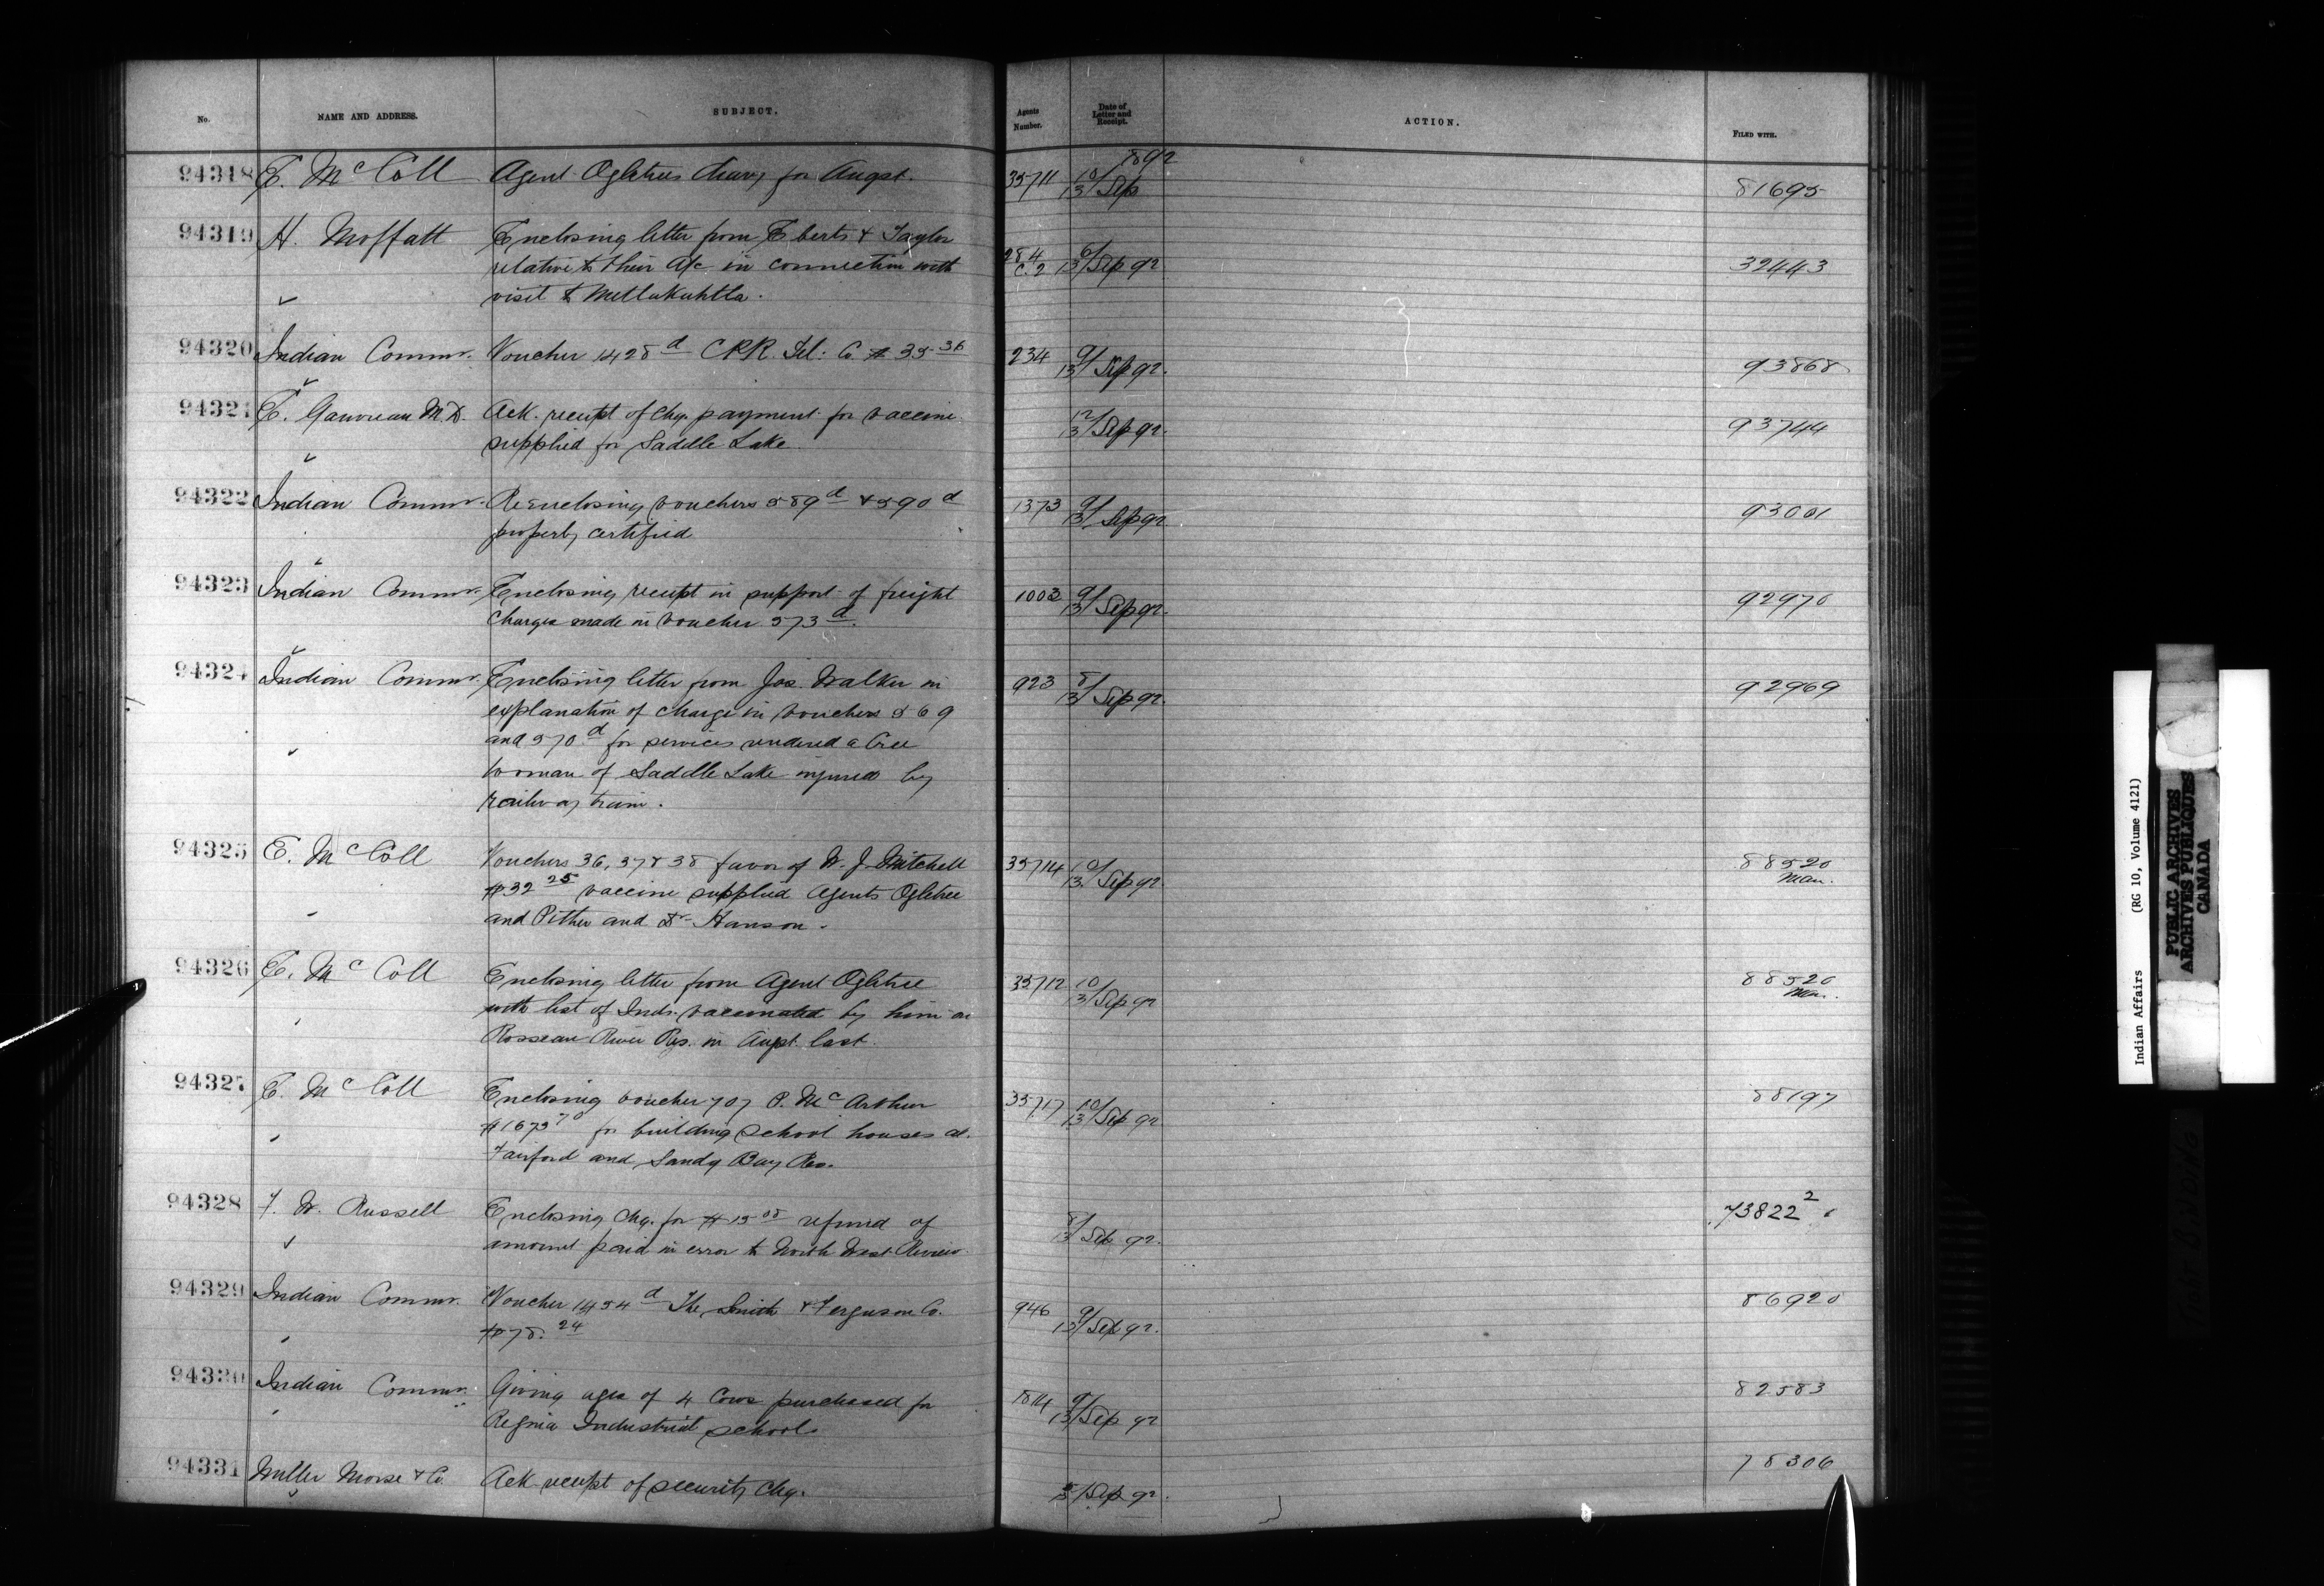 No.
NAME AND ADDRESS.
SUBJECT.
Agents Number.
Date of Letter and Receipt.
ACTION.
FILED WITH.
94318 E. McColl Agent Ogletrees diary for Augst. 35711 10/13 Sep 1892 81695
94319 H. Moffatt Enclosing letter from Eberts & Taylor
relative to their A/c in connection with
visit to Metlakahtla. 284 C.2 6/13 Sep 92 32443
94320 Indian Commr. Voucher 1428 d CPR. Tel: Co $35.36 234 9/13 Sep 92. 93868
94321 E. Gauvreau M.D. Ack. receipt of chq. payment for vaccine
supplied for Saddle Lake 12/13 Sep 92. 93744
94322 Indian Commr. Re Enclosing Vouchers 589 d & 590 d
properly certified 1373 9/13 Sep 92 93001
94323 Indian Commr. Enclosing receipt in support of freight
charges made in Voucher 573 d. 1003 9/13 Sep 92. 92970
94324 Indian Commr. Enclosing letter from Jas. Walker in
explanation of charge in Vouchers 569
and 570 d for services rendered a Cree
Woman of Saddle Lake injured by
railway train. 923 8/13 Sep 92. 92969
94325 E. McColl Vouchers 36, 37 & 38 favor of W. J. Mitchell
$32 25 vaccine supplied Agents Ogletree
and Pither and Dr Hanson. 35714 10/13 Sep 92. 88520 Man.
94326 E. McColl Enclosing letter from Agent Ogletree
with list of Inds. vaccinated by him on
Rosseau River Res. in Augst. last. 35712 10/13 Sep 92 88520 Man.
94327 E. McColl Enclosing voucher 707 P. McArthur
$1675 70 for building school houses at
Fairford and Sandy Bay Res. 35717 10/13 Sep 92 88197
94328 F. W. Russell Enclosing chq. for $15 05 refund of
amount paid in error to North West Review. 8/13 Sep 92. 73822 2
94329 Indian Commr. Voucher 1454 d The Smith & Ferguson Co.
$78.24 946 9/13 Sep 92. 86920
94330 Indian Commr. Giving ages of 4 Cows purchased for
Regina Industrial school. 1814 9/13 Sep 92 82583
94331 Miller Morse & Co. Ack receipt of security chq. Sep 92. 78306
Indian Affairs (RG 10, Volume 4121)
PUBLIC ARCHIVES
ARCHIVES PUBLIQUES
CANADA